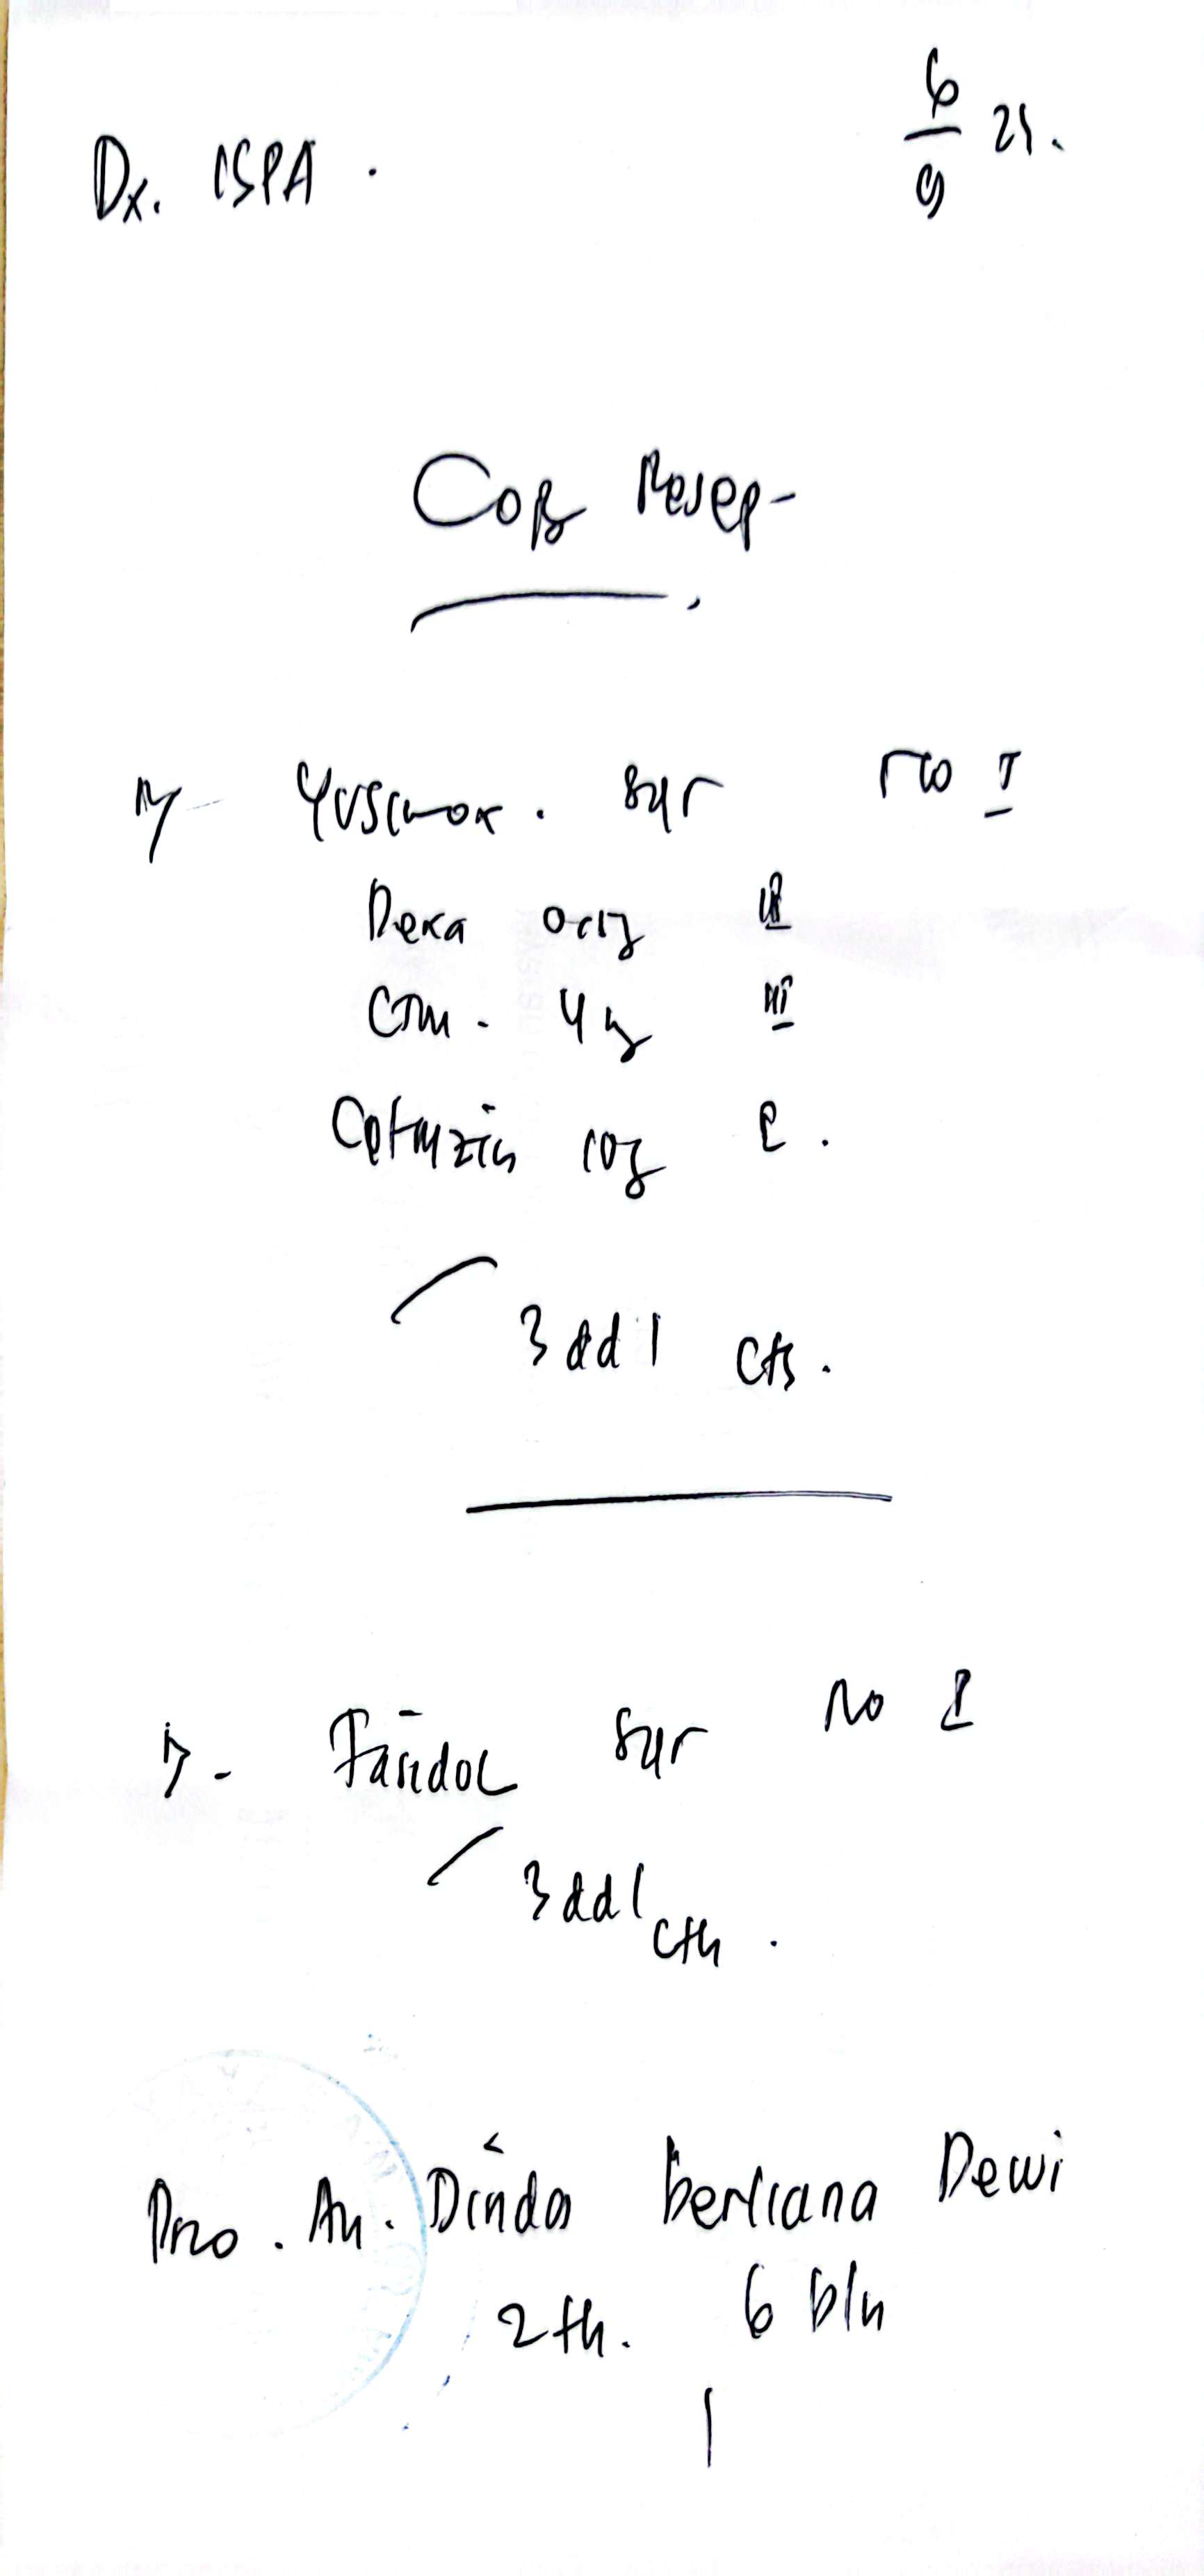 Dx. ISPA.
6/9 21.
Copy Resep
R/ Yusimox. syr no I
Dexa 0,5
CTM. 4 mg III
Cetirizin 10 mg
3 dd 1 cth.
R/ Fasidol syr no I
3 dd 1 cth.
Pro. An. Dinda berliana Dewi
2 th. 6 bln